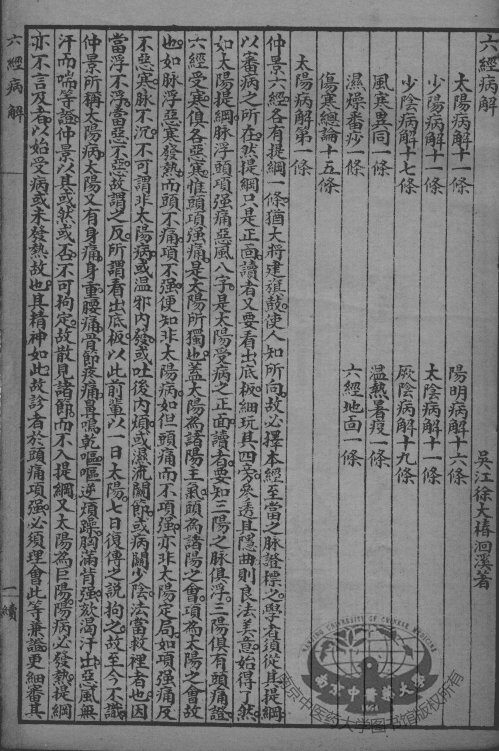 六經病解
吳江徐大椿洄溪著
太陽病解十一條
陽明病解十六條
少陽病解十一條
太陰病解十一條
少陰病解十七條
厥陰病解十九條
風寒異同一條
温熱暑疫一條
濕燥番痧一條
六經地面一條
傷寒總論十五條
太陽病解第一條
仲景六經各有提綱一條猶大將建旗鼓使人知所向故必擇本經至當之脉證標之學者須從其提綱
以審病之所在然提綱只是正面讀者又要看出底板細玩其四旁參透其隱曲則良法美意始得了然
如太陽提綱脉浮頭項强痛惡風八字是太陽受病之正面讀者要知三陽之脉俱浮三陽俱有頭痛證
六經受寒俱各惡寒惟頭項强痛是太陽所獨也蓋太陽為諸陽主氣頭為諸陽之會項為太陽之會故
也如脉浮惡寒發熱而頭不痛項不强便知非太陽病如但頭痛而不項强亦非太陽定局如項强痛反
不惡寒脉不沉不可謂非太陽病或温邪内發或吐後内煩或濕流關節或病關少陰法當救裡者也因
當浮不浮當惡不惡故謂之反所謂看出底板以此前輩以一日太陽七日復傳之說拘之故至今不識
仲景所稱太陽病太陽又有身痛身重腰痛骨節疼痛鼻鳴乾嘔嘔逆煩躁胸滿背强欬渴汗出惡風無
汗而喘等證仲景以其或然或否不可拘定故散見諸節而不入提綱又太陽為巨陽陽病必發熱提綱
亦不言及者以始受病或未發熱故也其精神如此故診者於頭痛項强必須理會此等兼證更細審其
六經病解
一
續
南京中醫藥大學
NANJING UNIVERSITY OF CHINESE MEDICINE
南京中医药大学图书馆版权所有